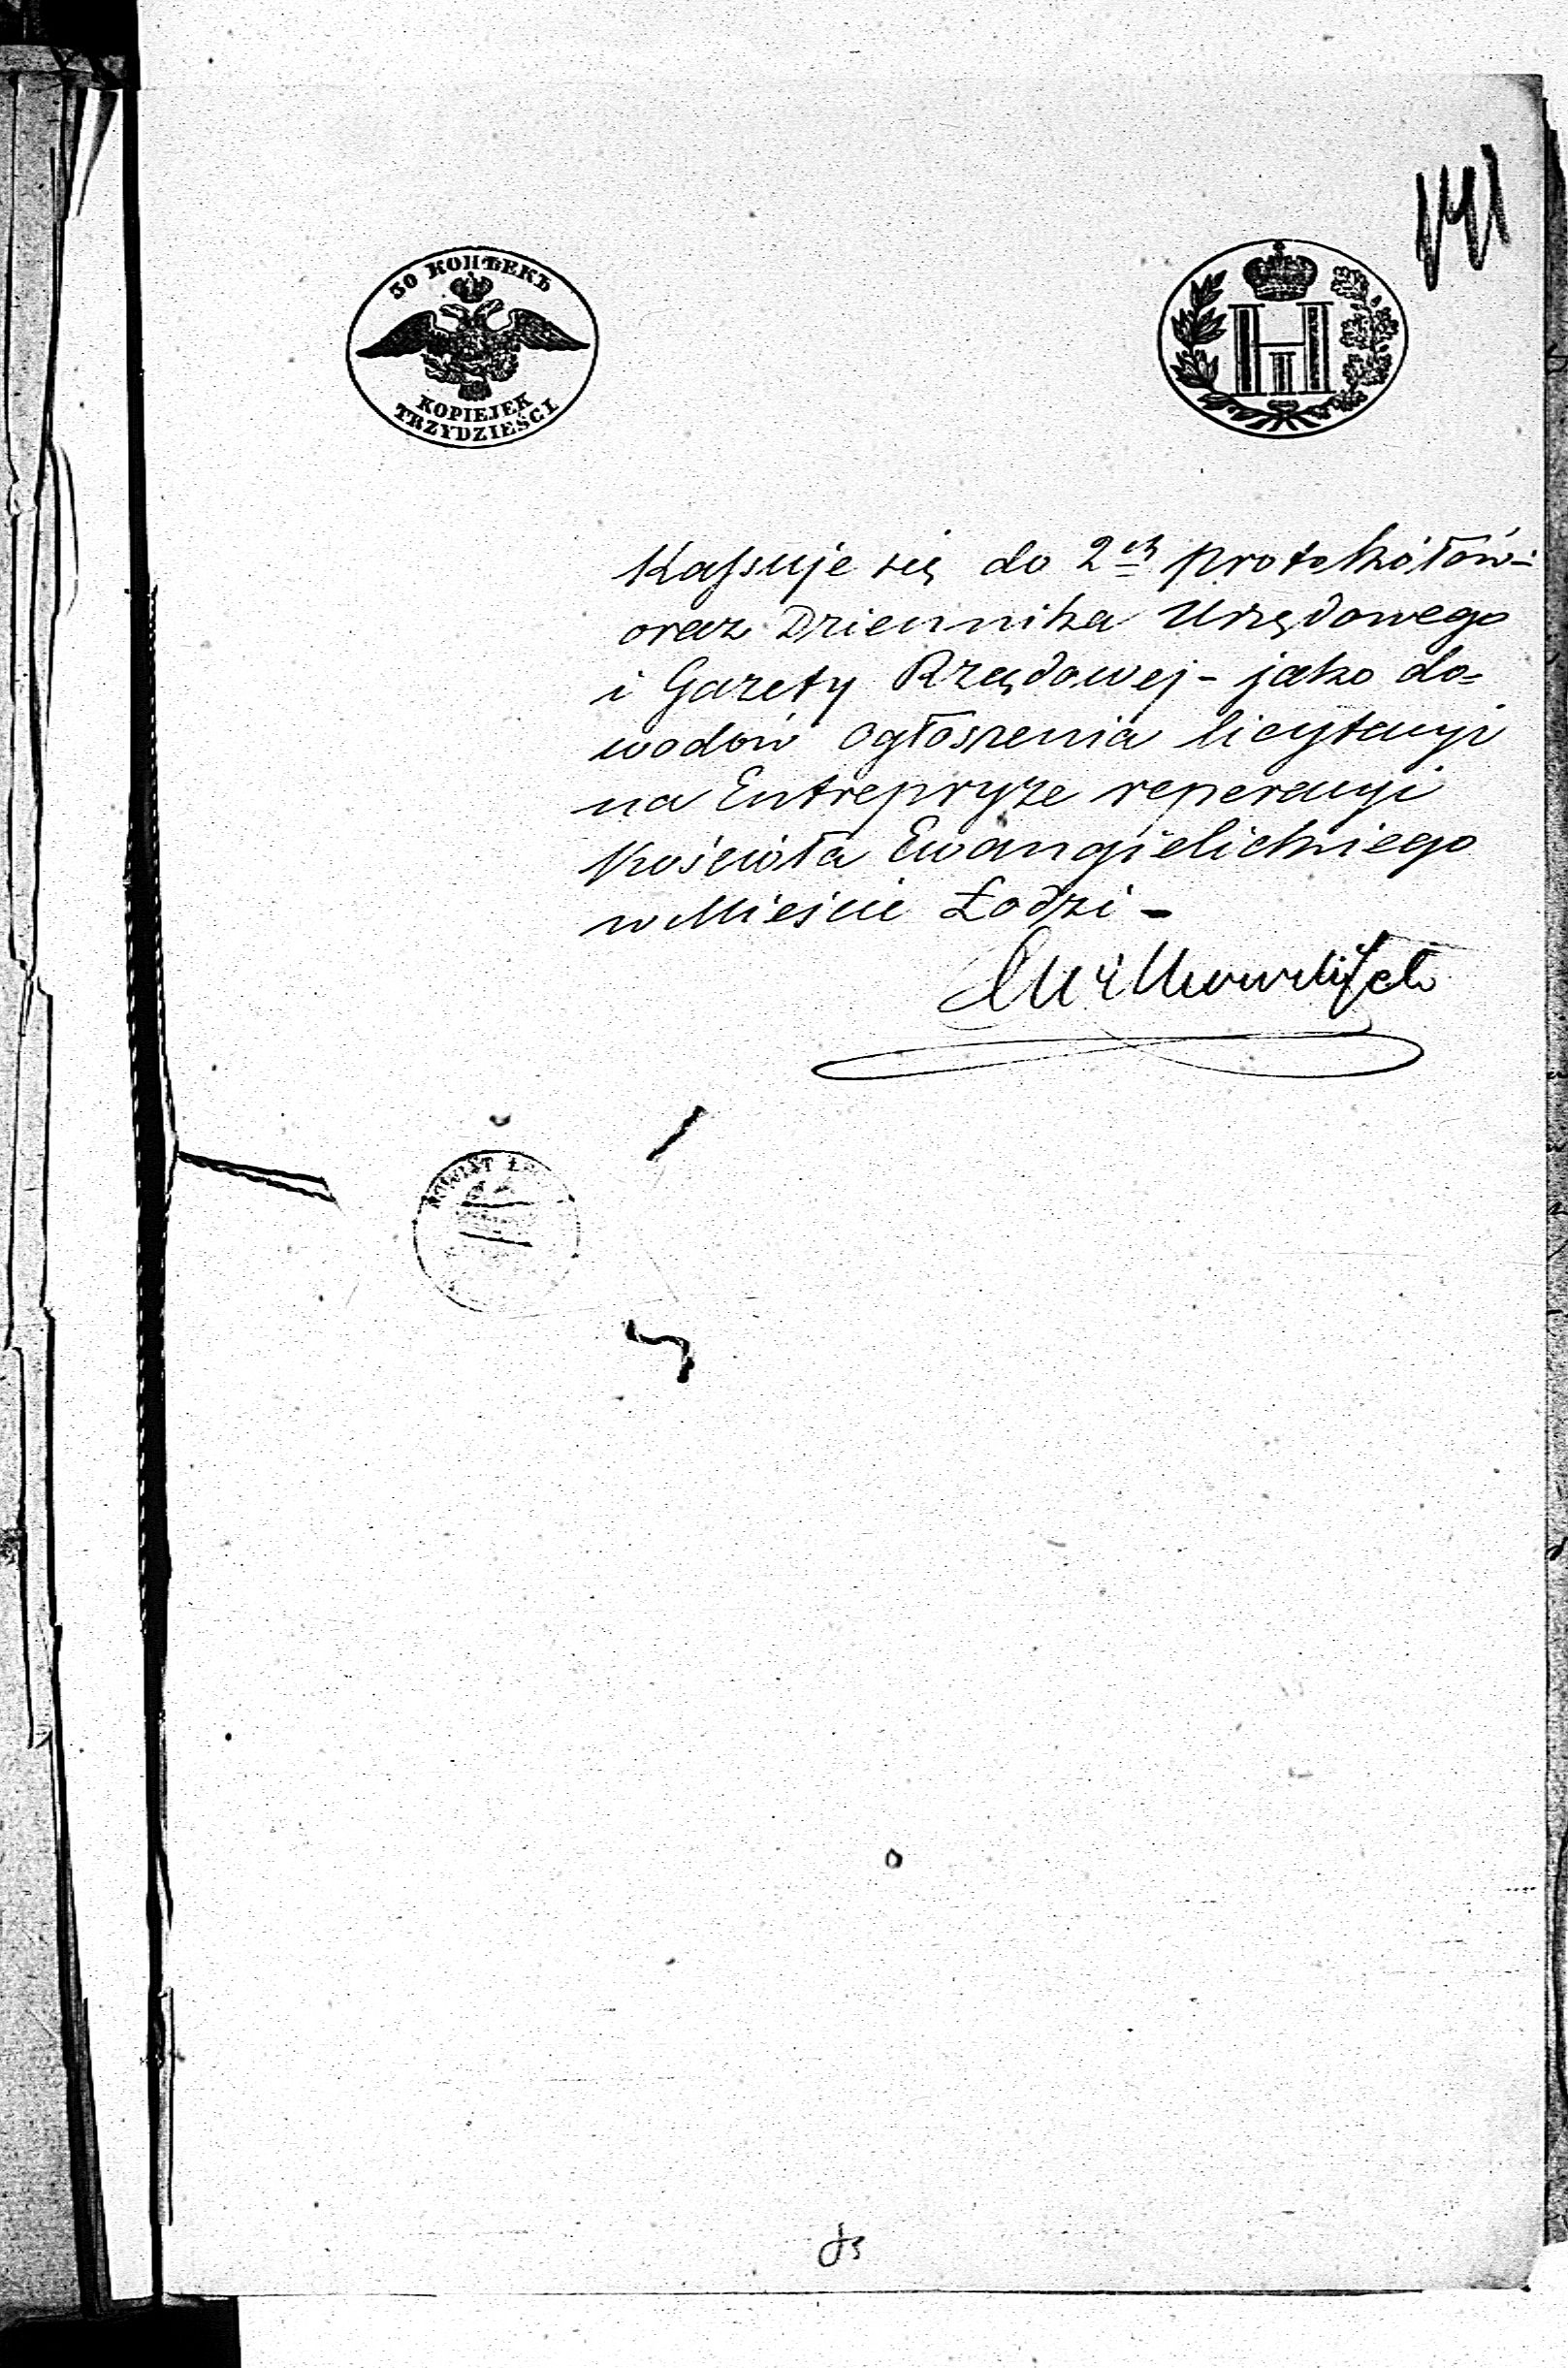 141
30 КОПѢЕКЪ
KOPIEJEK
TRZYDZIEŚCI
H
III
Kassuje się do 2ch protokółów
oraz Dziennika Urzędowego
i Gazety Rządowej – jako do=
wodów ogłoszenia licytacyi
na Entrepryze reperacyi
Kościoła Ewangielickiego
w Mieście Łodzi –
POWIAT